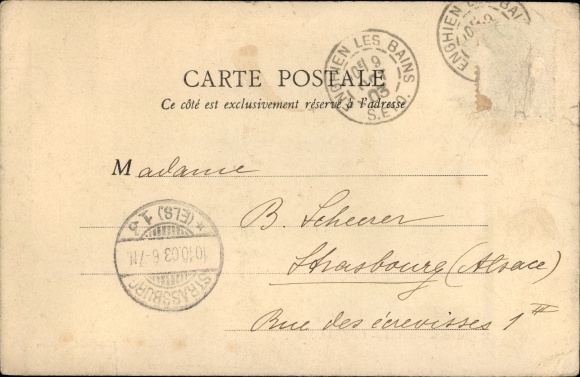 ENGHIEN LES BAINS
9
03
S.&O.
ENGHIEN LES BAI
CARTE POSTALE
Ce côté est exclusivement réservé à l'adresse
Madame
B. Scheerer
Strasbourg (Alsace)
Rue des écrevisses 1 II
STRASSBURG
10.10.03. 6-7 N.
* (ELS) 1 c